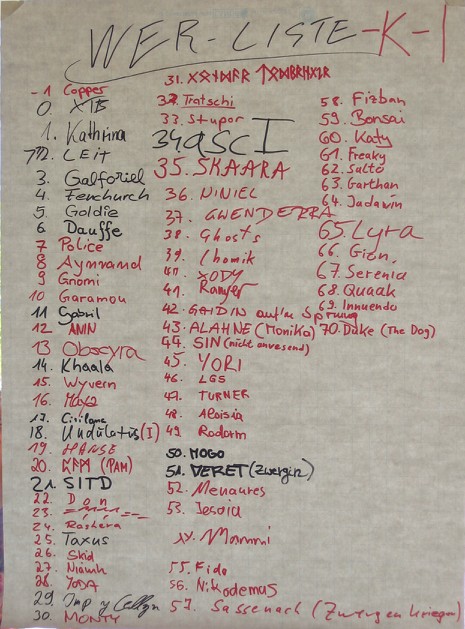 WER-LISTE-K-1
-1 Copper
0. XIB
1. Kathrina
2. LEIT
3. Galforiel
4. Fenchurch
5 Goldie
6. Dauffe
7 Police
8 Aynvand
9 Gnomi
10 Garamou
11 Gabril
12 AMN
13 Obscyra
14. Khaala
15. Wyvern
16. Maya
17.
18. Undulatus (I)
19. HANSE
20. (PAM)
21. SITD
22. Don
23.
24. Rashera
25. Taxus
26. Skid
27. Niamh
28. YODA
29. Imp y
30. MONTY
31.
32. Tratschi
33. Stupor
34 ASCI
35. SKAARA
36. NINIEL
37. GWENDERRA
38. Ghosts
39. Chomik
40. XODY
41. Ranger
42. GAIDIN auf'm Sprung
43. ALAHNE (Monika)
44. SIN (nicht anwesend)
45. YORI
46. LGS
47. TURNER
48. Aloisia
49. Radorm
50. MOGO
51. VERET (Zwergin)
52. Menaures
53. Jesaia
54. Mommi
55. Fido
56. Nikodemus
57. Sassenach (Zwergenkrieger)
58. Fizban
59. Bonsai
60. Katy
61. Freaky
62. Salto
63. Garthan
64. Jadawin
65. Lyra
66. Gion.
67. Serenia
68. Quaak
69. Innuendo
70. Duke (The Dog)